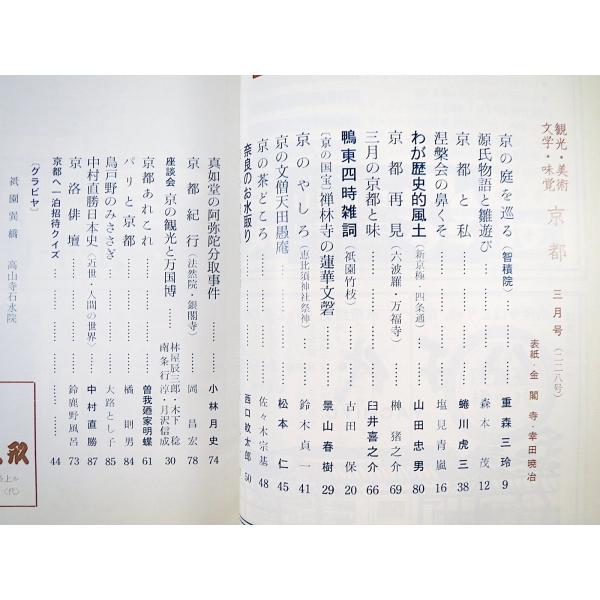 観光・美術
文学・味覚
京都
三月号
(二二八号)
表紙・金閣寺・幸田暁冶
京の庭を巡る(智積院)……重森三玲 9
源氏物語と雛遊び……森本茂 12
京都と私……蜷川虎三 38
涅槃会の鼻くそ……塩見青嵐 16
わが歴史的風土(新京極 四条通)……山田忠男 80
京都再見(六波羅・万福寺)……榊猪之介 69
三月の京都と味……臼井喜之介 66
鴨東四時雑詞(祇園竹枝)……古田保 20
〔京の国宝〕禅林寺の蓮華文磬……景山春樹 29
京のやしろ(恵比須神社祭神)……鈴木貞一 41
京の文僧天田愚庵……松本仁 45
京の茶どころ……佐々木宗基 48
奈良のお水取り……西口紋太郎 50
真如堂の阿弥陀分取事件……小林月史 74
京都紀行(法然院・銀閣寺)……岡昌宏 78
座談会 京の観光と万国博……林屋辰三郎・木下稔 南条行淳・月沢信成 30
京都あれこれ……曽我廼家明蝶 61
パリと京都……橘則男 84
鳥戸野のみささぎ……大路とし子 85
中村直勝日本史〈近世・人間の世界〉……中村直勝 87
京洛俳壇……鈴鹿野風呂 73
京都へ一泊招待クイズ……44
〔グラビヤ〕
祇園巽橋 高山寺石水院